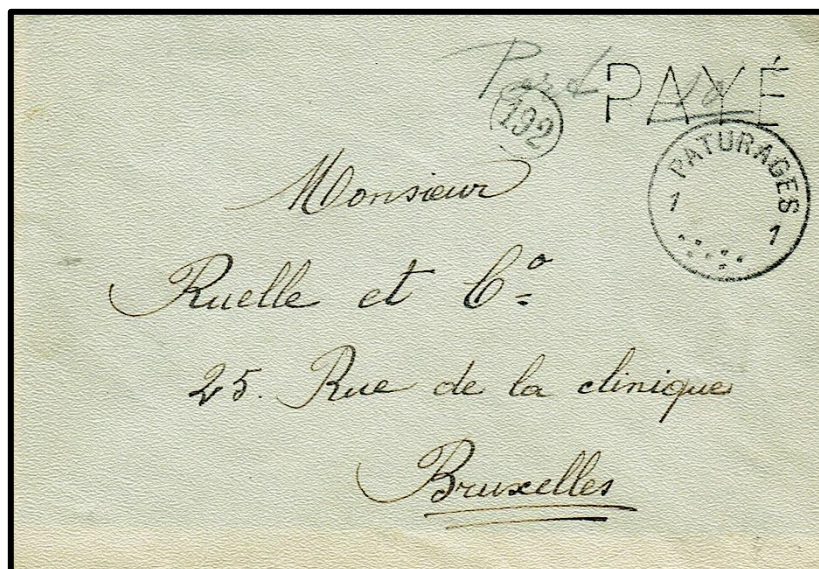 PAYÉ
192
PATURAGES
1 1
Monsieur
Ruelle et Cº
25. Rue de la clinique
Bruxelles